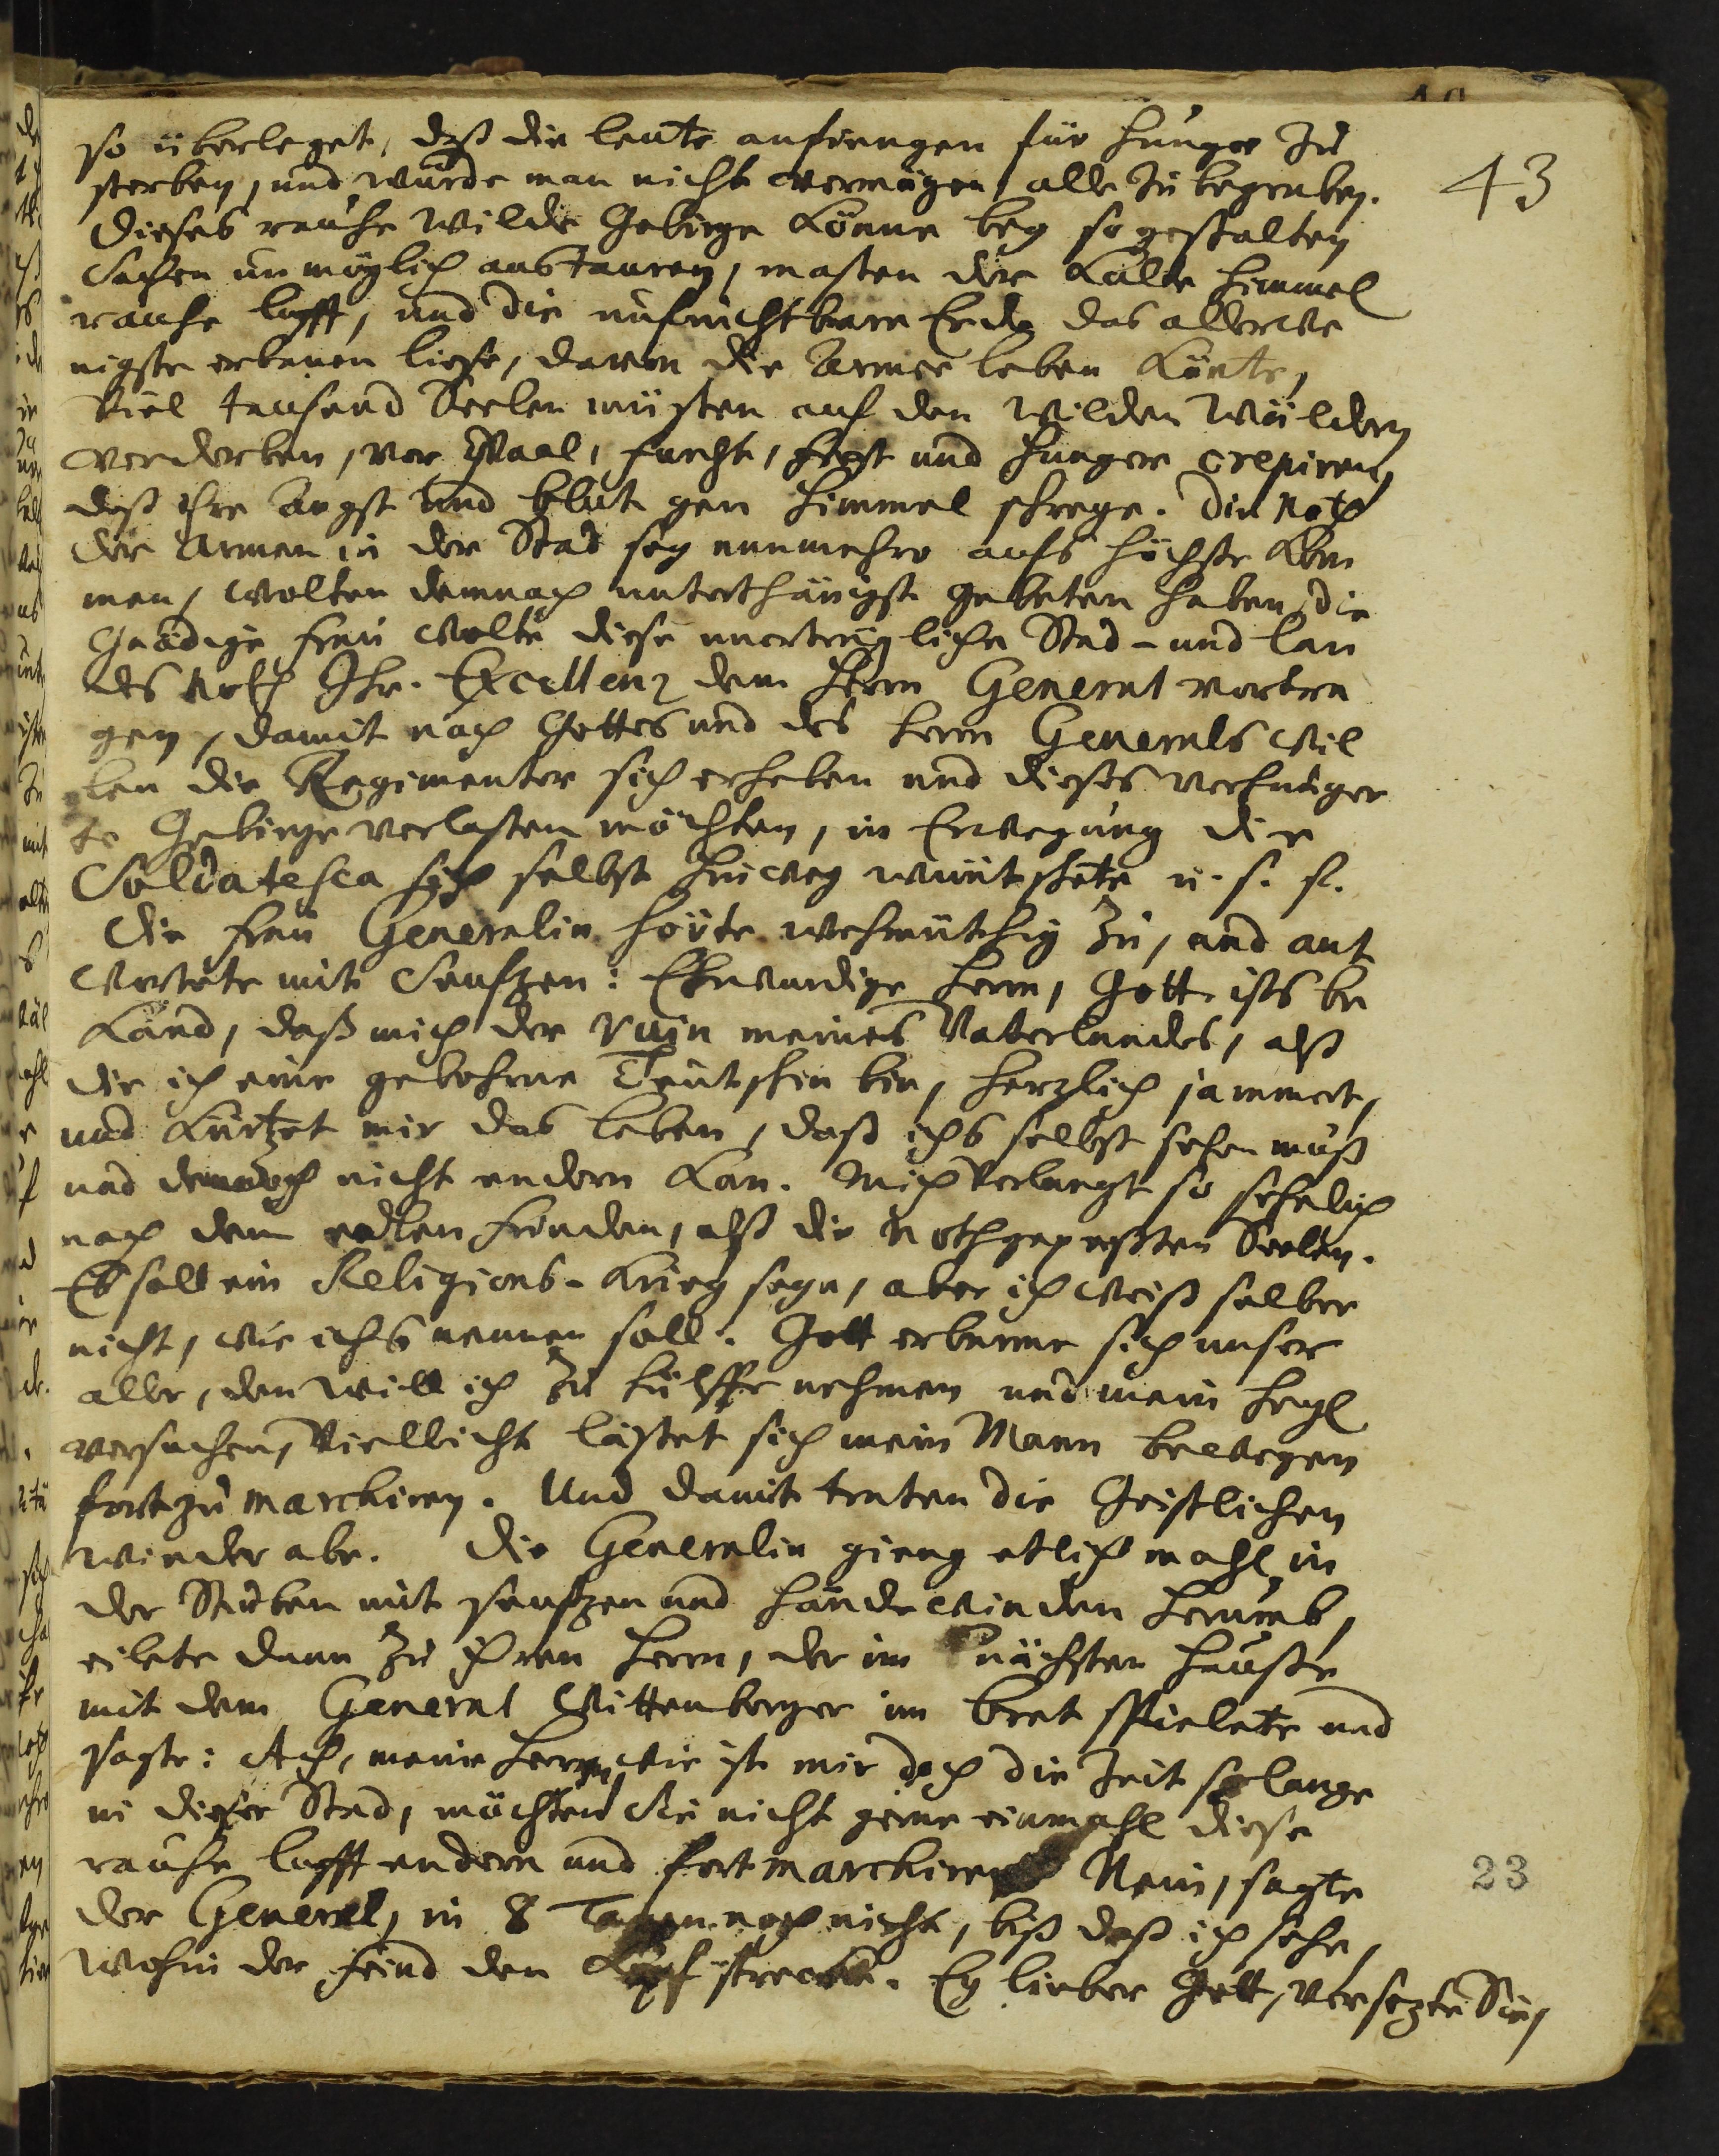 so überleget, daß die leute anfiengen für hunger zu
sterben, und würde man nicht vermögen, alle zu begraben.
Dieses rauhe wilde Gebirge könne bey so gestalten
Sachen unmöglich austauren, masten der kalte Himmel
rauhe lufft, und die unfruchtbare Erde das allerwe
nigste erbauen liese, davon die Armee leben könte,
Viel tausend Seelen müsten auf den wilden Wäldern
verderben, vor Qvaal, furcht, frost und hunger crepiren,
daß ihre Angst und blut gen Himmel schreye. Die Noth
der Armen in der Stad sey nunmehro aufs höchste kom
men, wolten demnach unterthänigst gebeten haben, die
Gnädige frau wolte diese unerträgliche Stad- und lan
des Noth Ihr. Excellenz dem Herrn General vortra
gen, damit nach Gottes und des Herrn Generals wil
len die Regimenter sich erheben und dieses verhunger
te Gebirge verlasten möchten, in Erwegung die
Soldatesca sich selbst hinweg wüntschete u. s. f.
Die frau Generalin hörte wehmüthig zu, und ant
wortete mit Seufzen: Ehrwürdige Herrn, Gott ists be
kand, daß mich der ruin meines Vaterlandes, alß
die ich eine gebohrne Teutschin bin, herzlich jammert,
und kürtzet mir das leben, daß ichs selbst sehen muß
und dennoch nicht endern kan. Mich verlangt so sehnlich
nach dem edlen frieden, alß die Nothgepreßten Seelen.
Es soll ein Religions-Krieg seyn, aber ich weiß selber
nicht, wie ichs nennen soll. Gott erbarme sich unser
aller, den will ich zu hülffe nehmen und mein Heyl
versuchen, Vielleicht lästet sich mein Mann bewegen
fortzu marchiren. Und damit traten die Geistlichen
wieder abe. Die Generalin gieng etlich mahl in
der Stuben mit seufzen und hände winden herumb,
eilete dann zu ihren Herrn, der im nächsten Hauße
mit dem General Wittenberger im bret spielete und
sagte: Ach, meine Herrn, wie ist mir doch die Zeit so lange
in dieser Stad, möchten Sie nicht gerne einmahl diese
rauhe lufft endern und fort marchiren Nein, sagte
der General, in 8 Tagen noch nicht, biß daß ich sehe,
wohin der feind den Kopf strecket. Ey lieber Gott, versezte Sie,
43
23